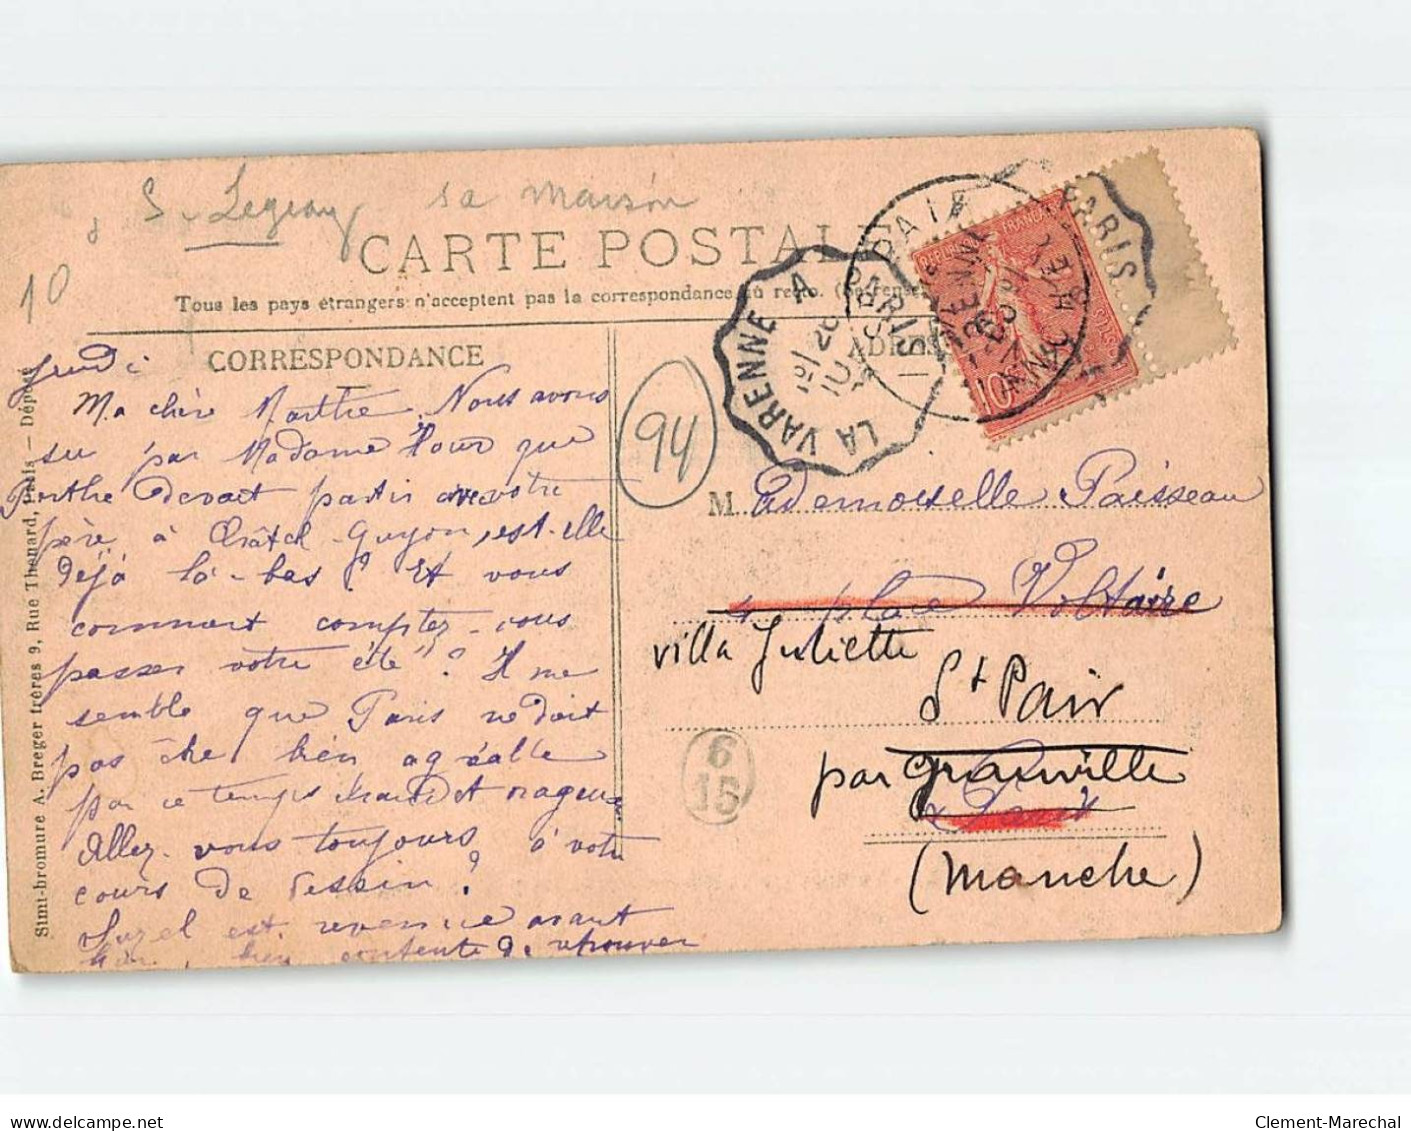 S. Legray sa maison
10
CARTE POSTALE
Tous les pays étrangers n'acceptent pas la correspondance au recto.
CORRESPONDANCE
Simi-bromure A. Breger frères 9, Rue Thenard, Paris — Déposé
Jeudi
Ma chère Marthe, Nous avons
su par Madame que
Berthe devait partir avec votre
père à Châtel-Guyon, est-elle
déjà là-bas? Et vous
comment comptez-vous
passer votre été? Il me
semble que Paris ne doit
pas être bien agréable
par ce temps chaud et orageux
Allez-vous toujours à votre
cours de dessin?
Suzel est revenue avant
hier, bien contente de retrouver
94
LA VARENNE A PARIS
26
PARIS
ST PAIR
10
M
ademoiselle Paisseau
4 place Voltaire
villa Juliette
St Pair
par Granville
(Manche)
6
15
www.delcampe.net
Clement-Marechal